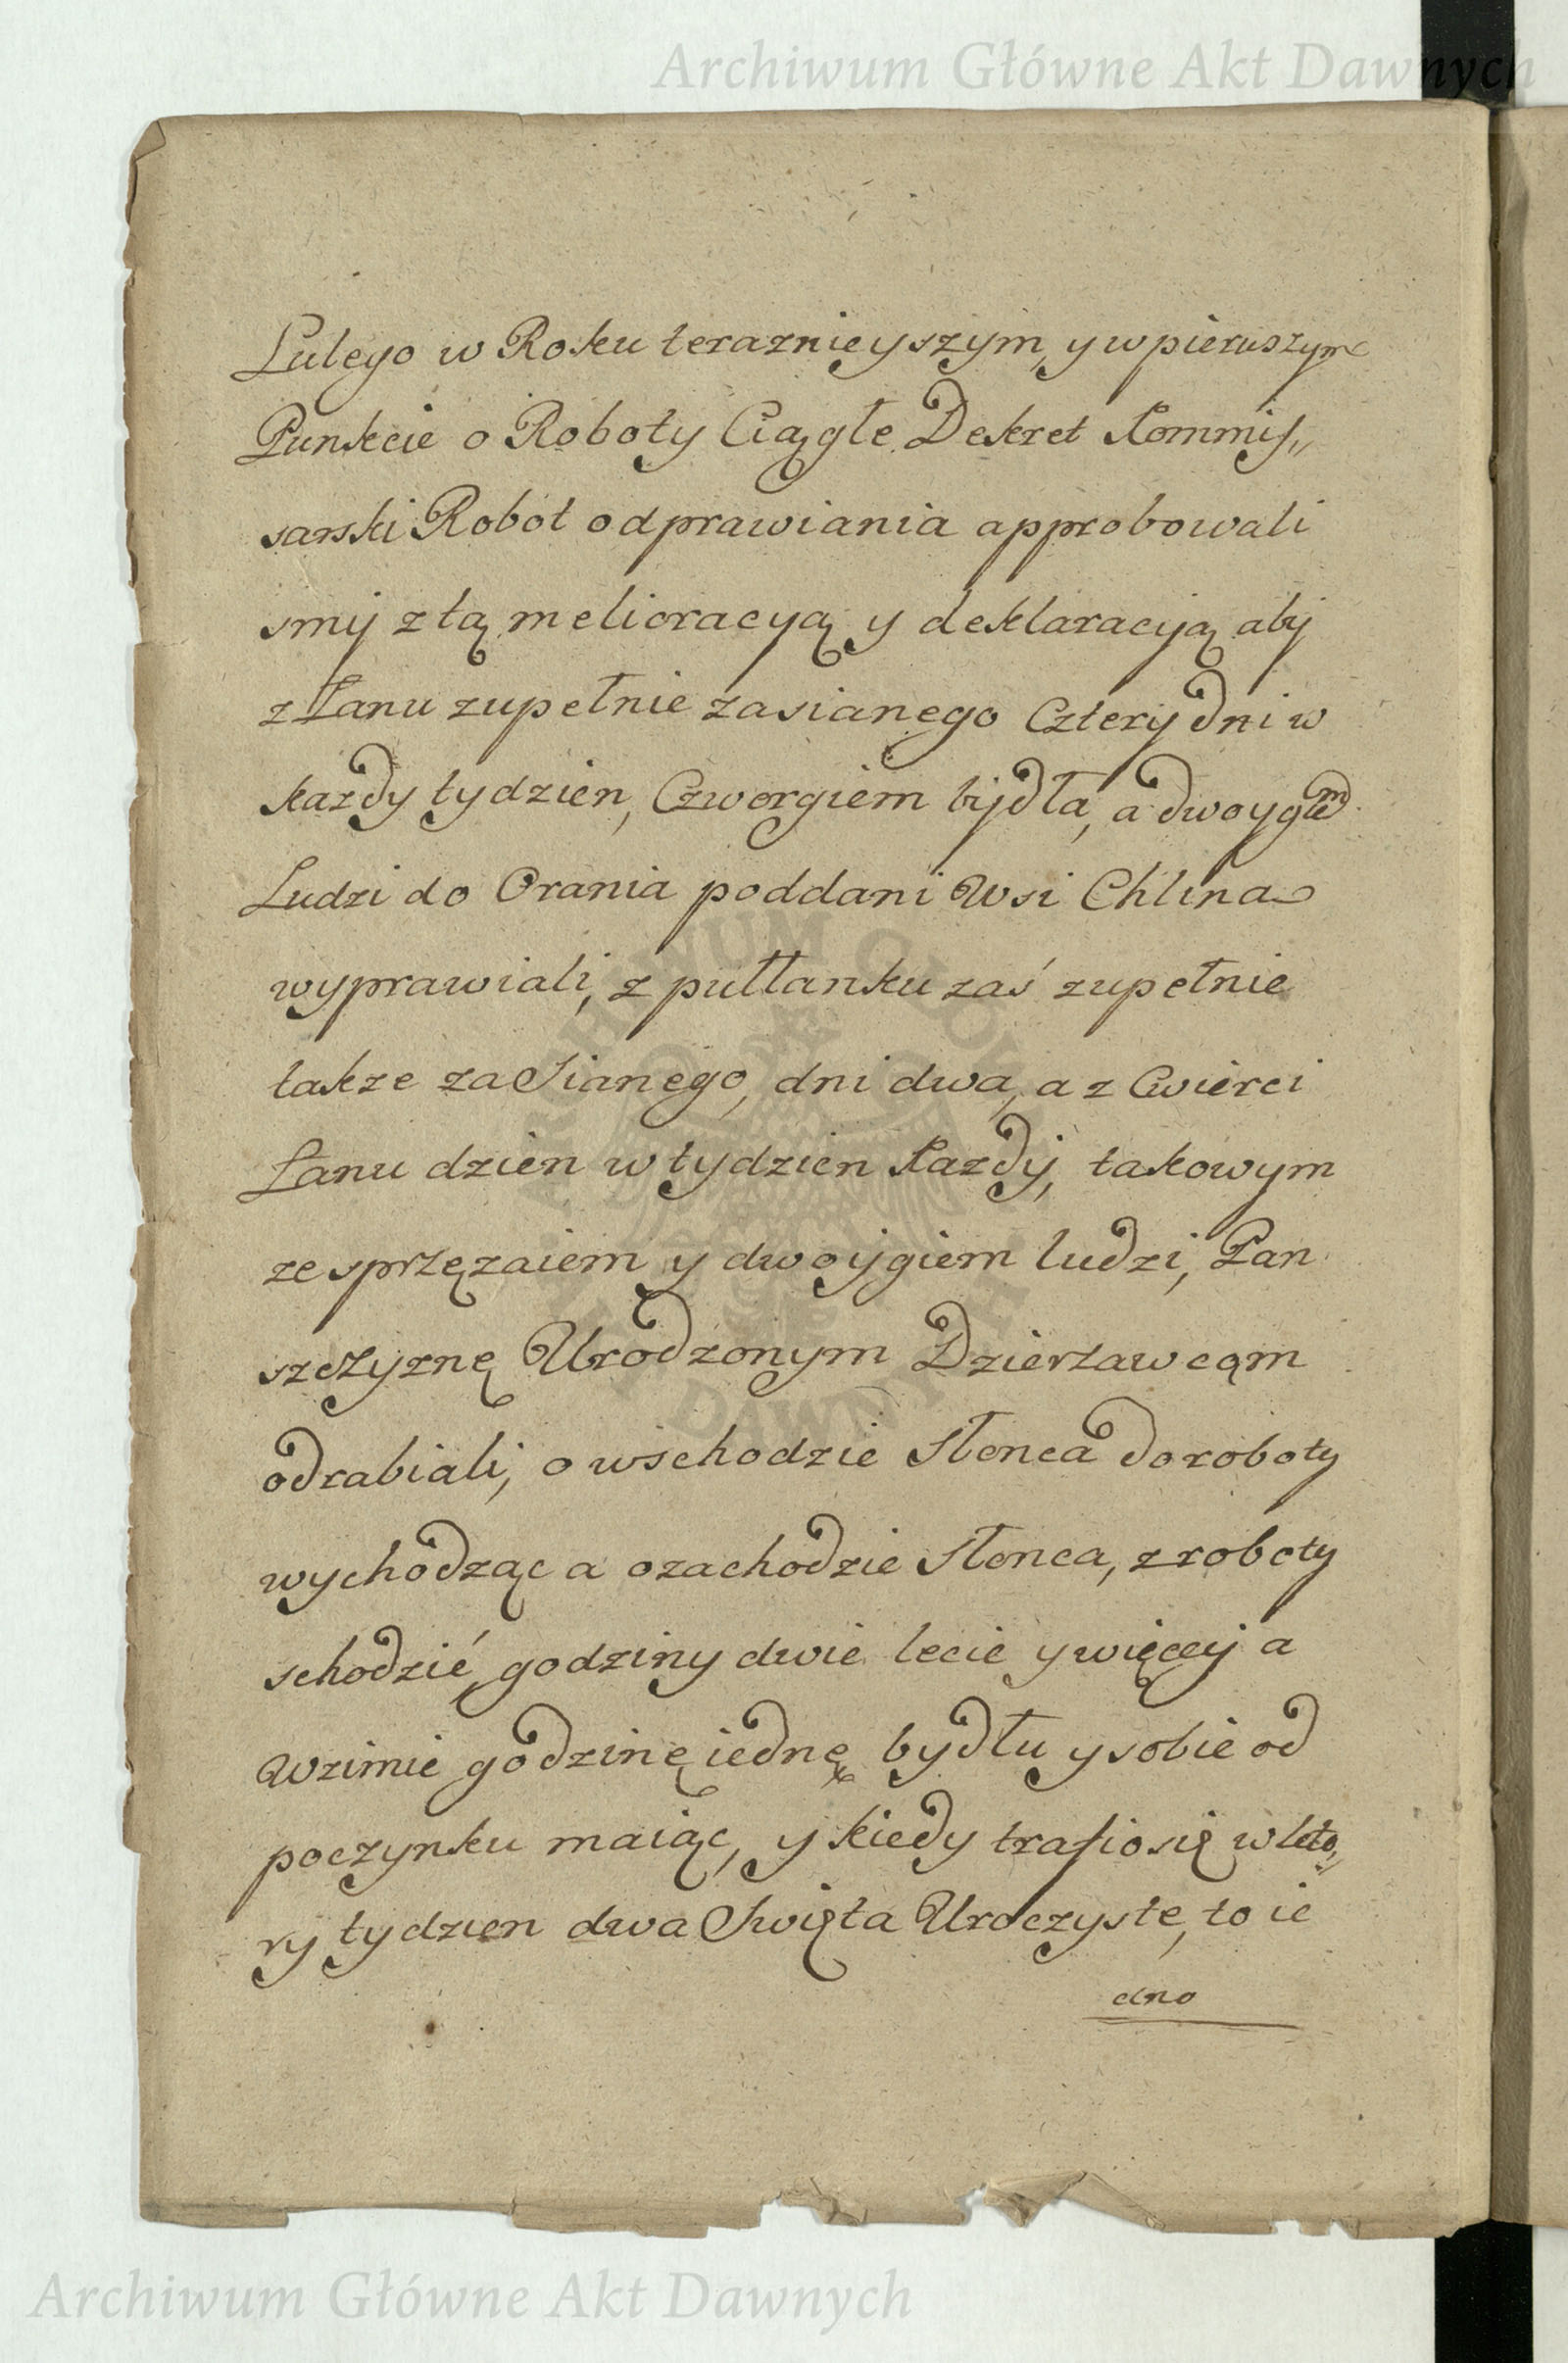 Archiwum Główne Akt Dawnych
Lutego w Roku teraznieyszym, y w pierwszym
Punkcie o Roboty Ciągłe Dekret Kommis„
sarski Robot odprawiania approbowali
smy z tą melioracyą y deklaracyją aby
z Łanu zupełnie zasianego Cztery dni w
kazdy tydzien, Czworgiem bydła, a dwoygiem
Ludzi do Orania poddani Wsi Chlina
wyprawiali, z pułłanku zaś zupełnie
takze zasianego, dni dwa, a z Cwierci
Łanu dzien w tydzien Kazdy, takowym
ze sprzęzaiem y dwoygiem ludzi, Pan
szczyznę Urodzonym Dzierzawcąm
odrabiali, o wschodzie Słonca do roboty
wychodząc a o zachodzie Słonca, z roboty
schodzić, godziny dwie lecie y więcey a
Wzimie godzinę iednę bydłu y sobie od
poczynku maiąc, y kiedy trafio się w kto„
ry tydzien dwa Swięta Uroczyste, to ie
dno
ARCHIWUM GŁÓWNE AKT DAWNYCH
Archiwum Główne Akt Dawnych